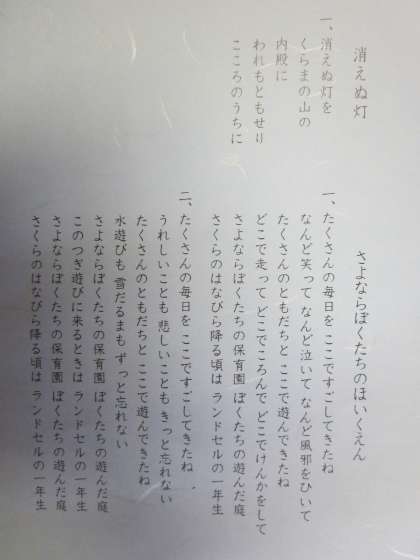 消えぬ灯
一、消えぬ灯を
くらまの山の
内殿に
われもともせり
こころのうちに
さよならぼくたちのほいくえん
一、たくさんの毎日を ここですごしてきたね
なんど笑って なんど泣いて なんど風邪をひいて
たくさんのともだちと ここで遊んできたね
どこで走って どこでころんで どこでけんかをして
さよならぼくたちの保育園 ぼくたちの遊んだ庭
さくらのはなびら降る頃は ランドセルの一年生
二、たくさんの毎日を ここですごしてきたね
うれしいことも 悲しいことも きっと忘れない
たくさんのともだちと ここで遊んできたね
水遊びも 雪だるまも ずっと忘れない
さよならぼくたちの保育園 ぼくたちの遊んだ庭
このつぎ遊びに来るときは ランドセルの一年生
さよならぼくたちの保育園 ぼくたちの遊んだ庭
さくらのはなびら降る頃は ランドセルの一年生